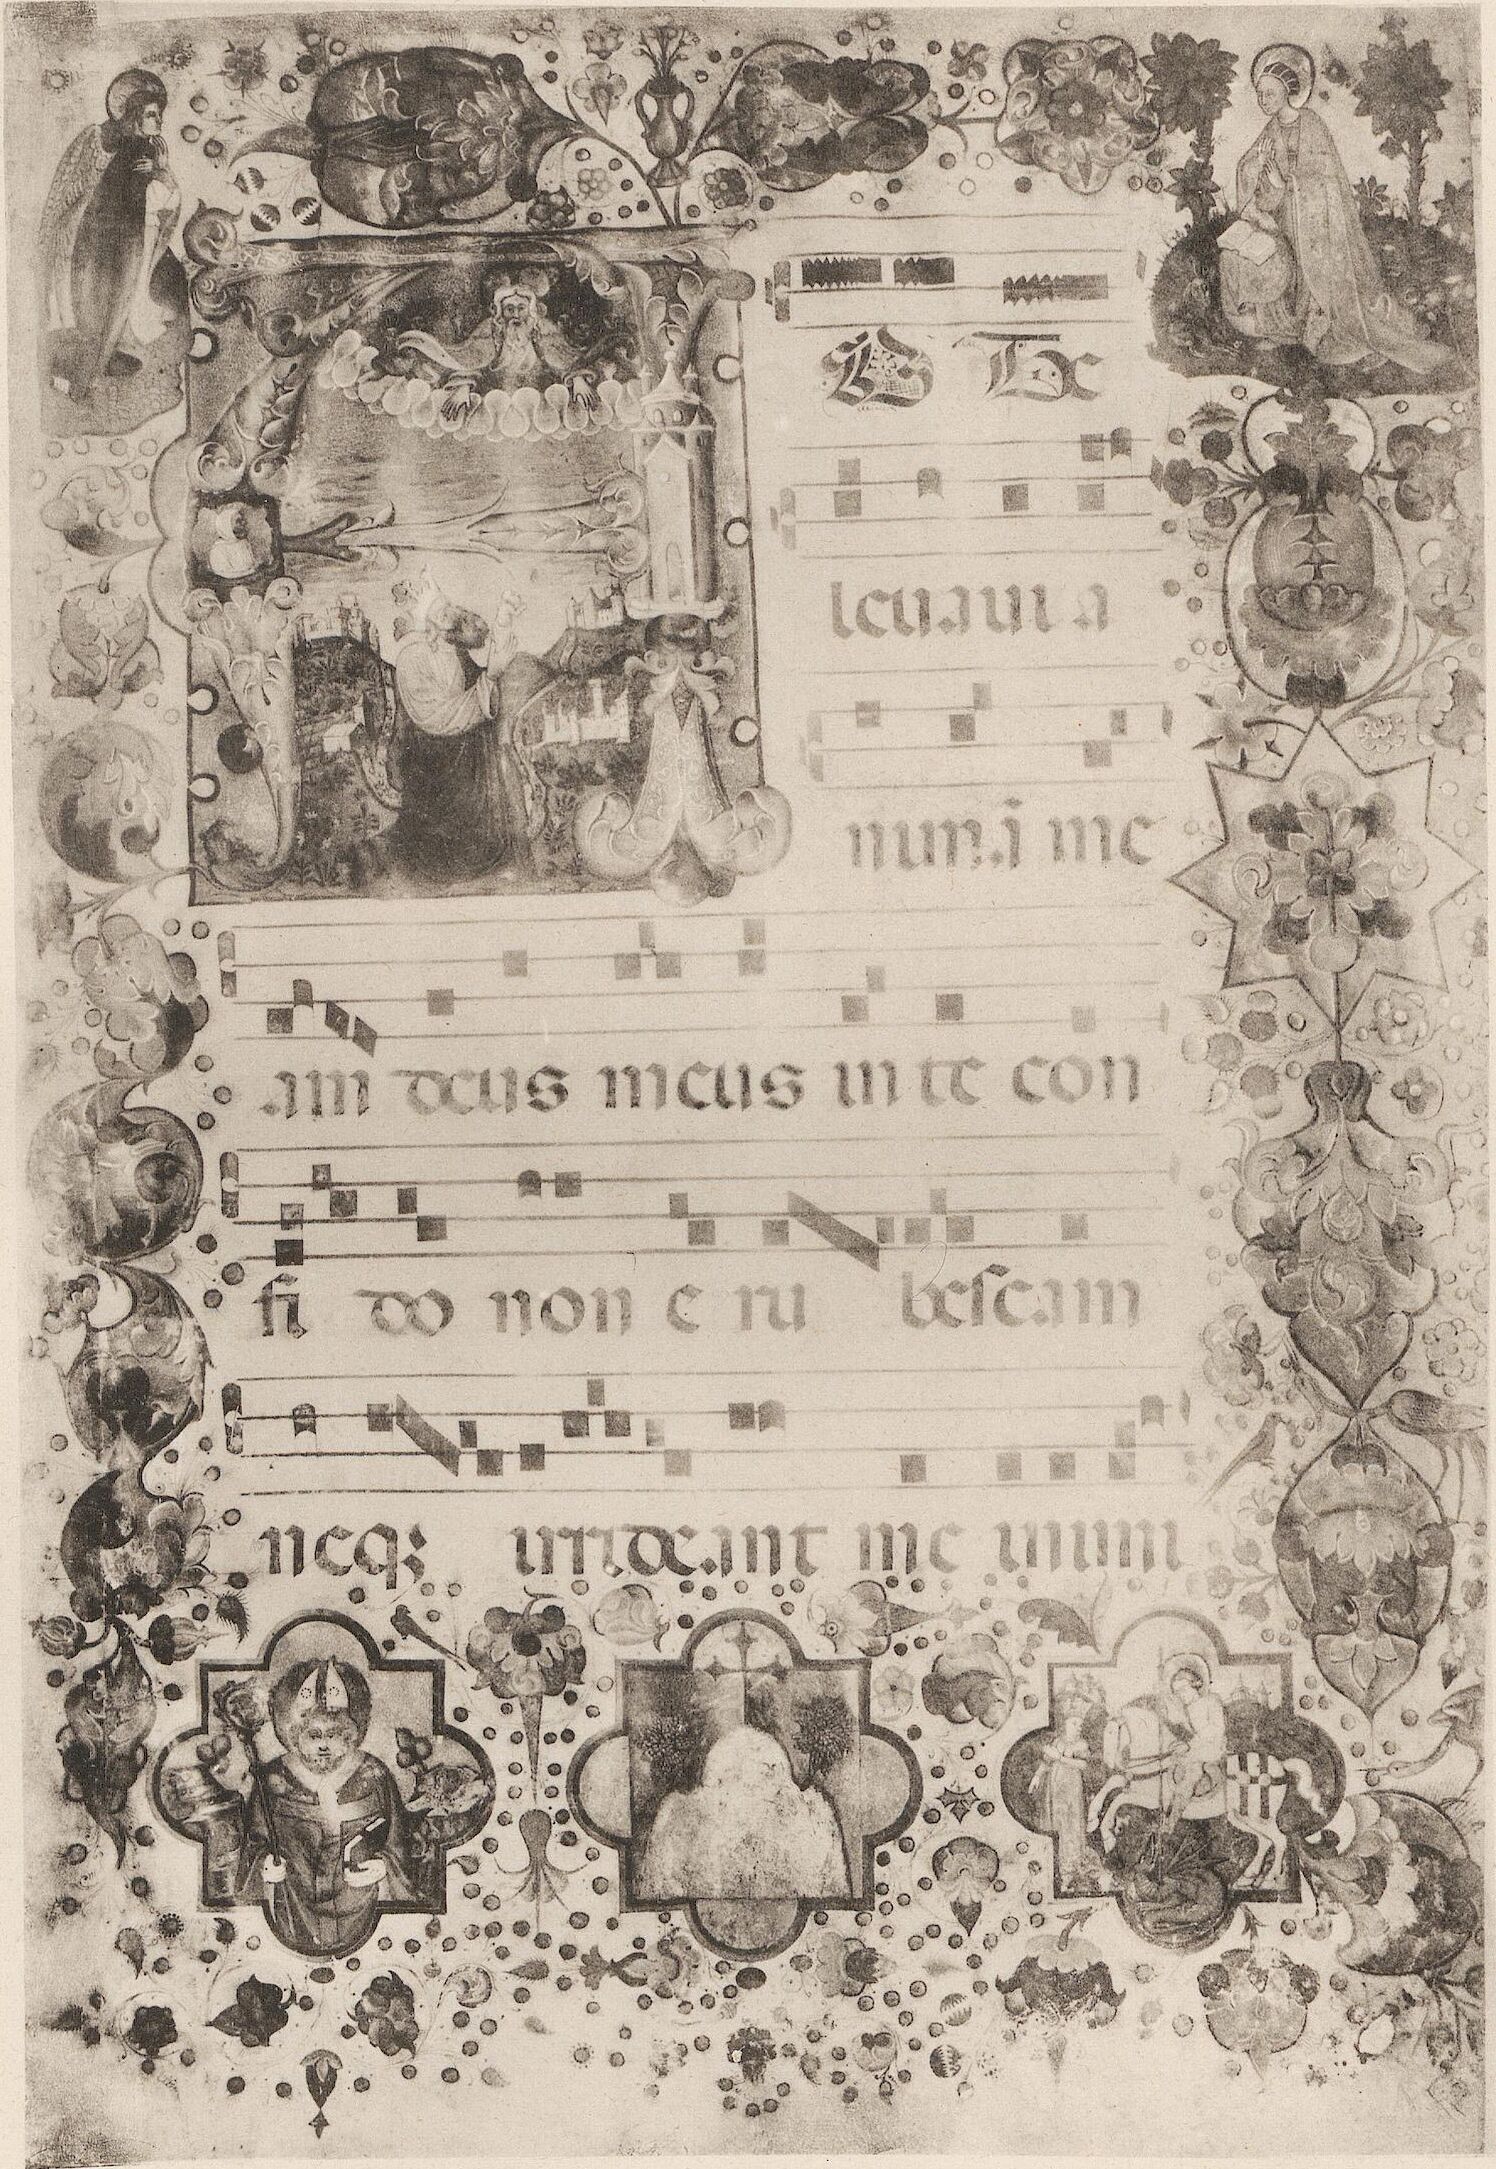 AD Te
leuaui a
nimā me
am deus meus in te con
fi do non e ru bescam
neqꝫ irrideant me inimi